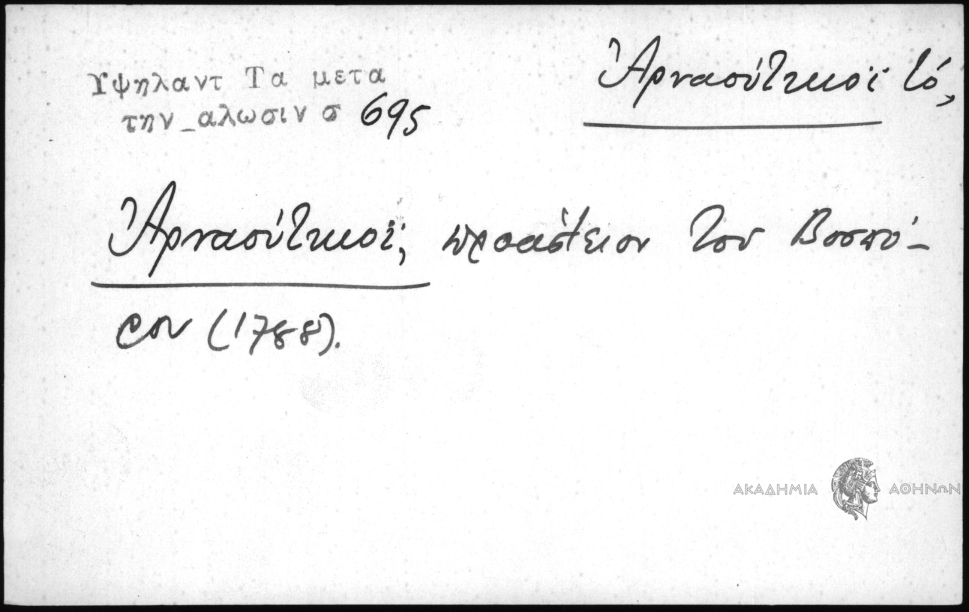 Υψηλαντ Τα μετα
την_αλωσιν σ 695
Ἀρναούτκιοϊ τό,
Ἀρναούτκιοϊ, προάστειον του Βοσπό-
ρου (1788).
ΑΚΑΔΗΜΙΑ ΑΘΗΝΩΝ